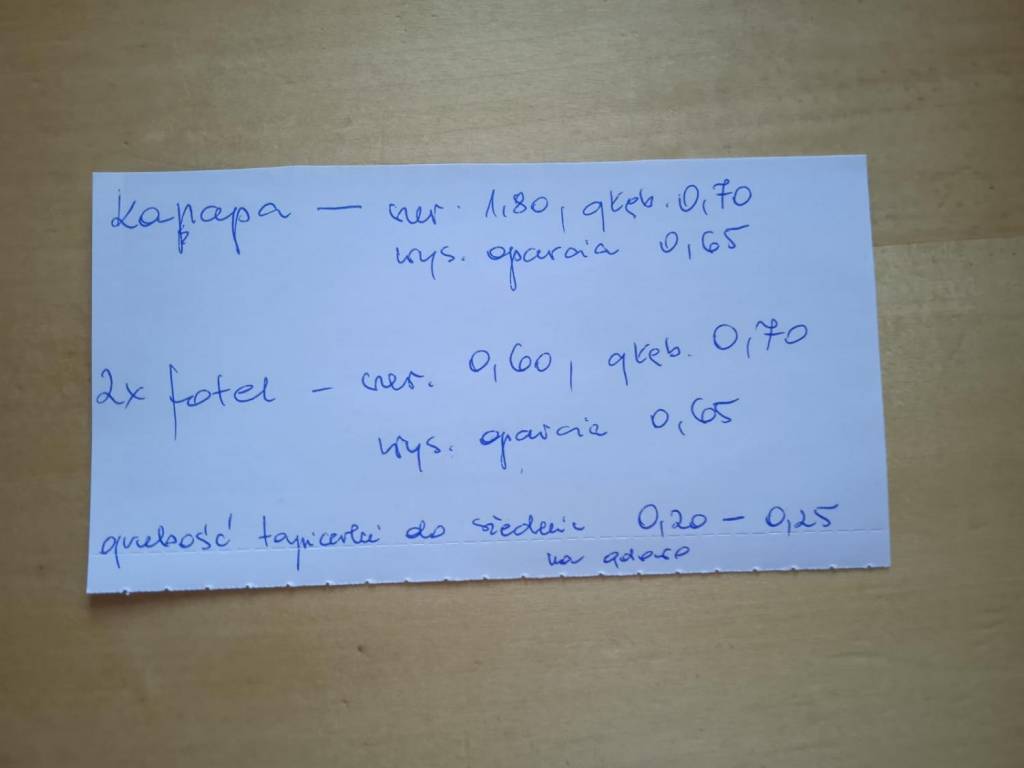 kanapa — szer. 1,80, głęb. 0,70
wys. oparcia 0,65
2x fotel – szer. 0,60, głęb. 0,70
wys. oparcia 0,65
grubość tapicerki do siedzenia 0,20 – 0,25
na